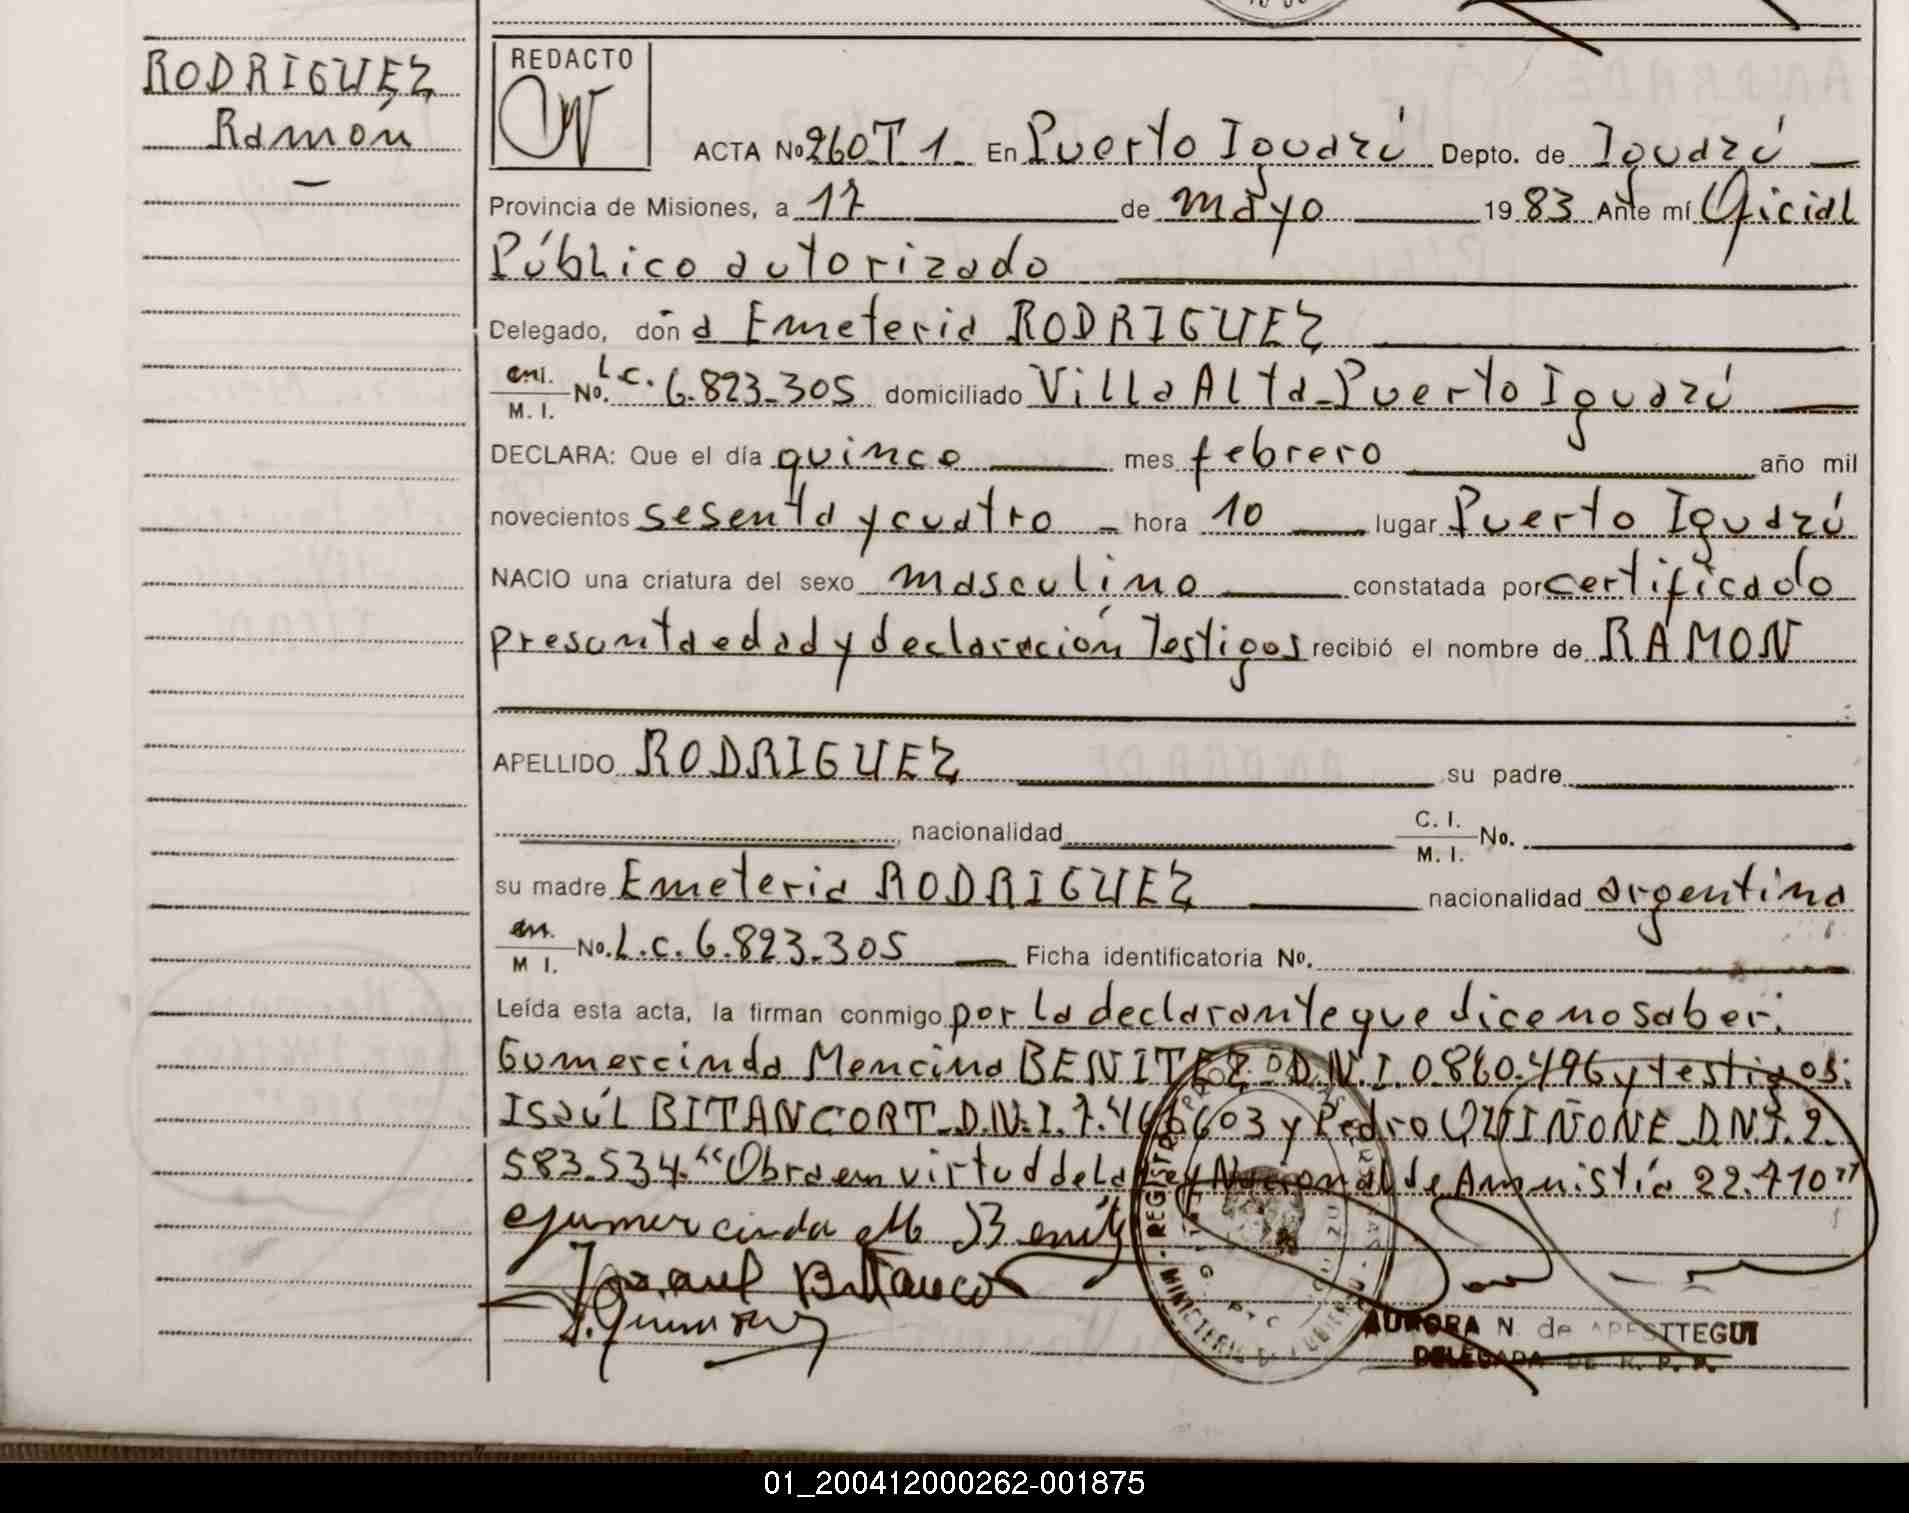 RODRIGUEZ
Ramón
REDACTO
ACTA No 260 T 1 En Puerto Iguazú Depto. de Iguazú
Provincia de Misiones, a 17 de mayo 1983 Ante mí Oficial
Público autorizado
Delegado, don a Emeteria RODRIGUEZ
M. I. No. L.C. 6.823.305 domiciliado Villa Alta - Puerto Iguazú
DECLARA: Que el día quince mes febrero año mil
novecientos sesenta y cuatro hora 10 lugar Puerto Iguazú
NACIO una criatura del sexo masculino constatada por certificado
presunta edad y declaración Testigos recibió el nombre de RAMON
APELLIDO RODRIGUEZ su padre
nacionalidad C. I. M. I. No.
su madre Emeteria RODRIGUEZ nacionalidad argentina
M I. No. L.C. 6.823.305 Ficha identificatoria No.
Leída esta acta, la firman conmigo por la declarante que dice no saber:
Gumercinda Mencina BENITEZ D.N.I. 0.860.496 y testigos:
Isaúl BITANCORT D.N.I. 7.466603 y Pedro QUIÑONE D.N.I. 2.
583.534. "Obra en virtud de la Ley Nacional de Amnistía 22.710"
Gumercinda M Benitez
Isaul Bitancor
AURORA N. de APESTTEGUI
DELEGADA DE R. P. P.
01_200412000262-001875